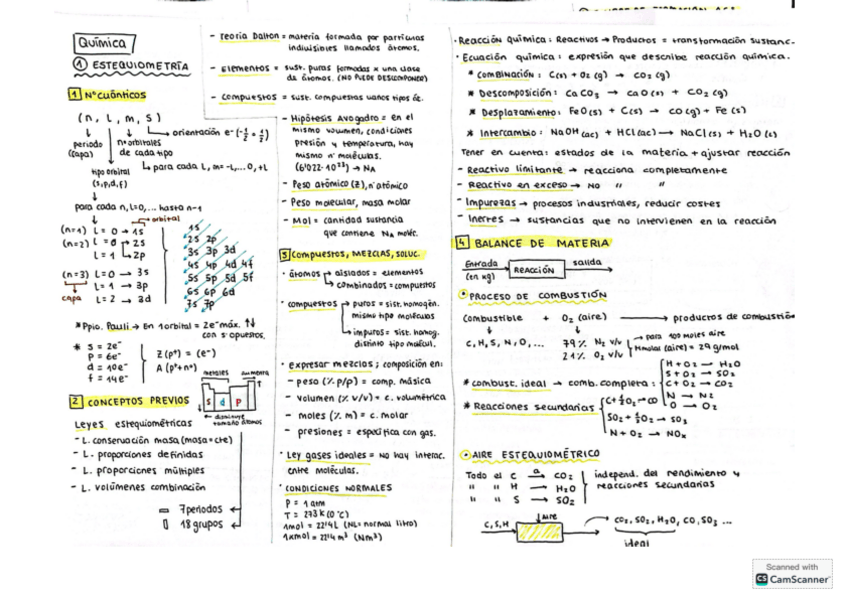 Química
① ESTEQUIOMETRÍA
1 Nº cuánticos
(n, L, m, s)
orientación e⁻ (-1/2 o 1/2)
periodo (capa)
nº orbitales
de cada tipo
para cada L, m = -L,...0, +L
tipo orbital
(s,p,d,f)
para cada n, L=0,... hasta n-1
orbital
(n=1) L = 0 → 1s
(n=2) L = 0 → 2s
L = 1 → 2p
(n=3) L = 0 → 3s
L = 1 → 3p
capa L = 2 → 3d
1s
2s 2p
3s 3p 3d
4s 4p 4d 4f
5s 5p 5d 5f
6s 6p 6d
7s 7p
* Ppio. Pauli → En 1 orbital = 2e⁻ máx. ↑↓
con s opuestos.
* s = 2e⁻
p = 6e⁻
d = 10e⁻
f = 14e⁻
Z (p⁺) = (e⁻)
A (p⁺+n⁰)
metales aumenta
T
s d p
← disminuye
tamaño átomos
2 CONCEPTOS PREVIOS
Leyes estequiométricas
- L. conservación masa (masa = cte)
- L. proporciones definidas
- L. proporciones múltiples
- L. volúmenes combinación
7 periodos
18 grupos
- Teoría Dalton = materia formada por partículas
indivisibles llamados átomos.
- Elementos = sust. puras formadas x una clase
de átomos. (NO PUEDE DESCOMPONER)
- Compuestos = sust. compuestas varios tipos de.
- Hipótesis Avogadro = en el
mismo volumen, condiciones
presión y temperatura, hay
mismo nº moléculas.
(6'022·10²³) → NA
- Peso atómico (Z), nº atómico
- Peso molecular, masa molar
- Mol = cantidad sustancia
que contiene NA moléc.
3 Compuestos, MEZCLAS, SOLUC.
· átomos → aislados = elementos
→ combinados = compuestos
· compuestos → puros = sist. homogén.
mismo tipo moléculas
→ impuros = sist. homog.
distinto tipo molécul.
· expresar mezclas; composición en:
- peso (% p/p) = comp. másica
- volumen (% v/v) = c. volumétrica
- moles (% m) = c. molar
- presiones = específica con gas.
· Ley gases ideales = No hay interac.
entre moléculas.
· CONDICIONES NORMALES
P = 1 atm
T = 273 k (0 ºC)
1mol = 22'4L (NL = normal litro)
1kmol = 22'4 m³ (Nm³)
· Reacción química: Reactivos → Productos = transformación sustanc.
· Ecuación química: expresión que describe reacción química.
* Combinación: C(s) + O₂(g) → CO₂(g)
* Descomposición: CaCO₃ → CaO(s) + CO₂(g)
* Desplazamiento: FeO(s) + C(s) → CO(g) + Fe(s)
* Intercambio: NaOH(ac) + HCl(ac) → NaCl(s) + H₂O(l)
Tener en cuenta: estados de la materia + ajustar reacción
- Reactivo limitante → reacciona completamente
- Reactivo en exceso → No " "
- Impurezas → procesos industriales, reducir costes
- Inertes → sustancias que no intervienen en la reacción
4 BALANCE DE MATERIA
Entrada
(en kg)
REACCIÓN
salida
· PROCESO DE COMBUSTIÓN
Combustible + O₂ (aire) → productos de combustión
C, H, S, N, O, ...
79% N₂ v/v
21% O₂ v/v
para 100 moles aire
Mmolal (aire) = 29 g/mol
* combust. ideal → comb. completa:
H + O₂ → H₂O
S + O₂ → SO₂
C + O₂ → CO₂
N → N₂
O → O₂
* Reacciones secundarias
C + 1/2 O₂ → CO
SO₂ + 1/2 O₂ → SO₃
N + O₂ → NOx
· AIRE ESTEQUIOMÉTRICO
Todo el C a→ CO₂
" " H → H₂O
" " S → SO₂
independ. del rendimiento y
reacciones secundarias
Aire
C, S, H
CO₂, SO₂, H₂O, CO, SO₃ ...
ideal
Scanned with
CS CamScanner